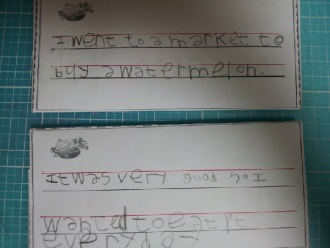 I went to a market to
buy a watermelon.
It was very
wanted to eat it